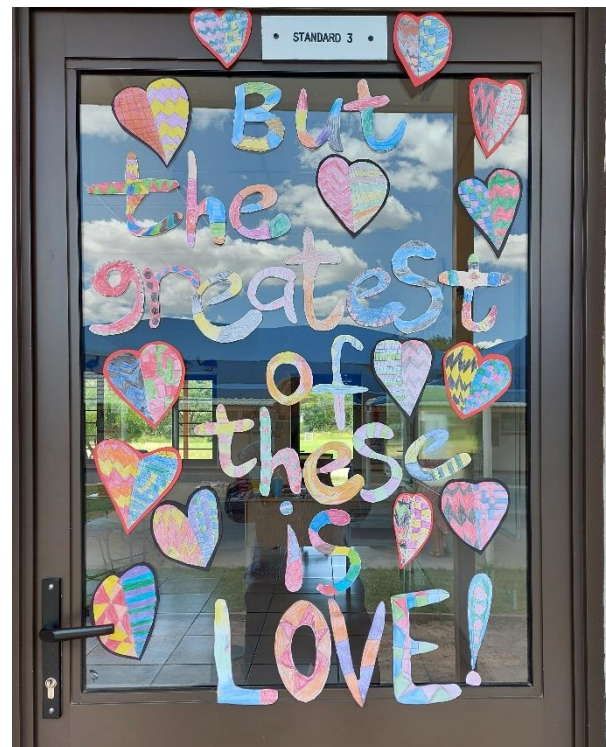 STANDARD 3
But
the
greatest
of
these
is
LOVE!